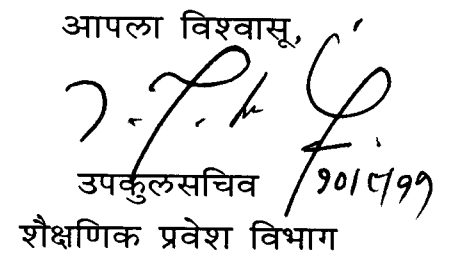 आपला विश्वासू,
उपकुलसचिव
शैक्षणिक प्रवेश विभाग